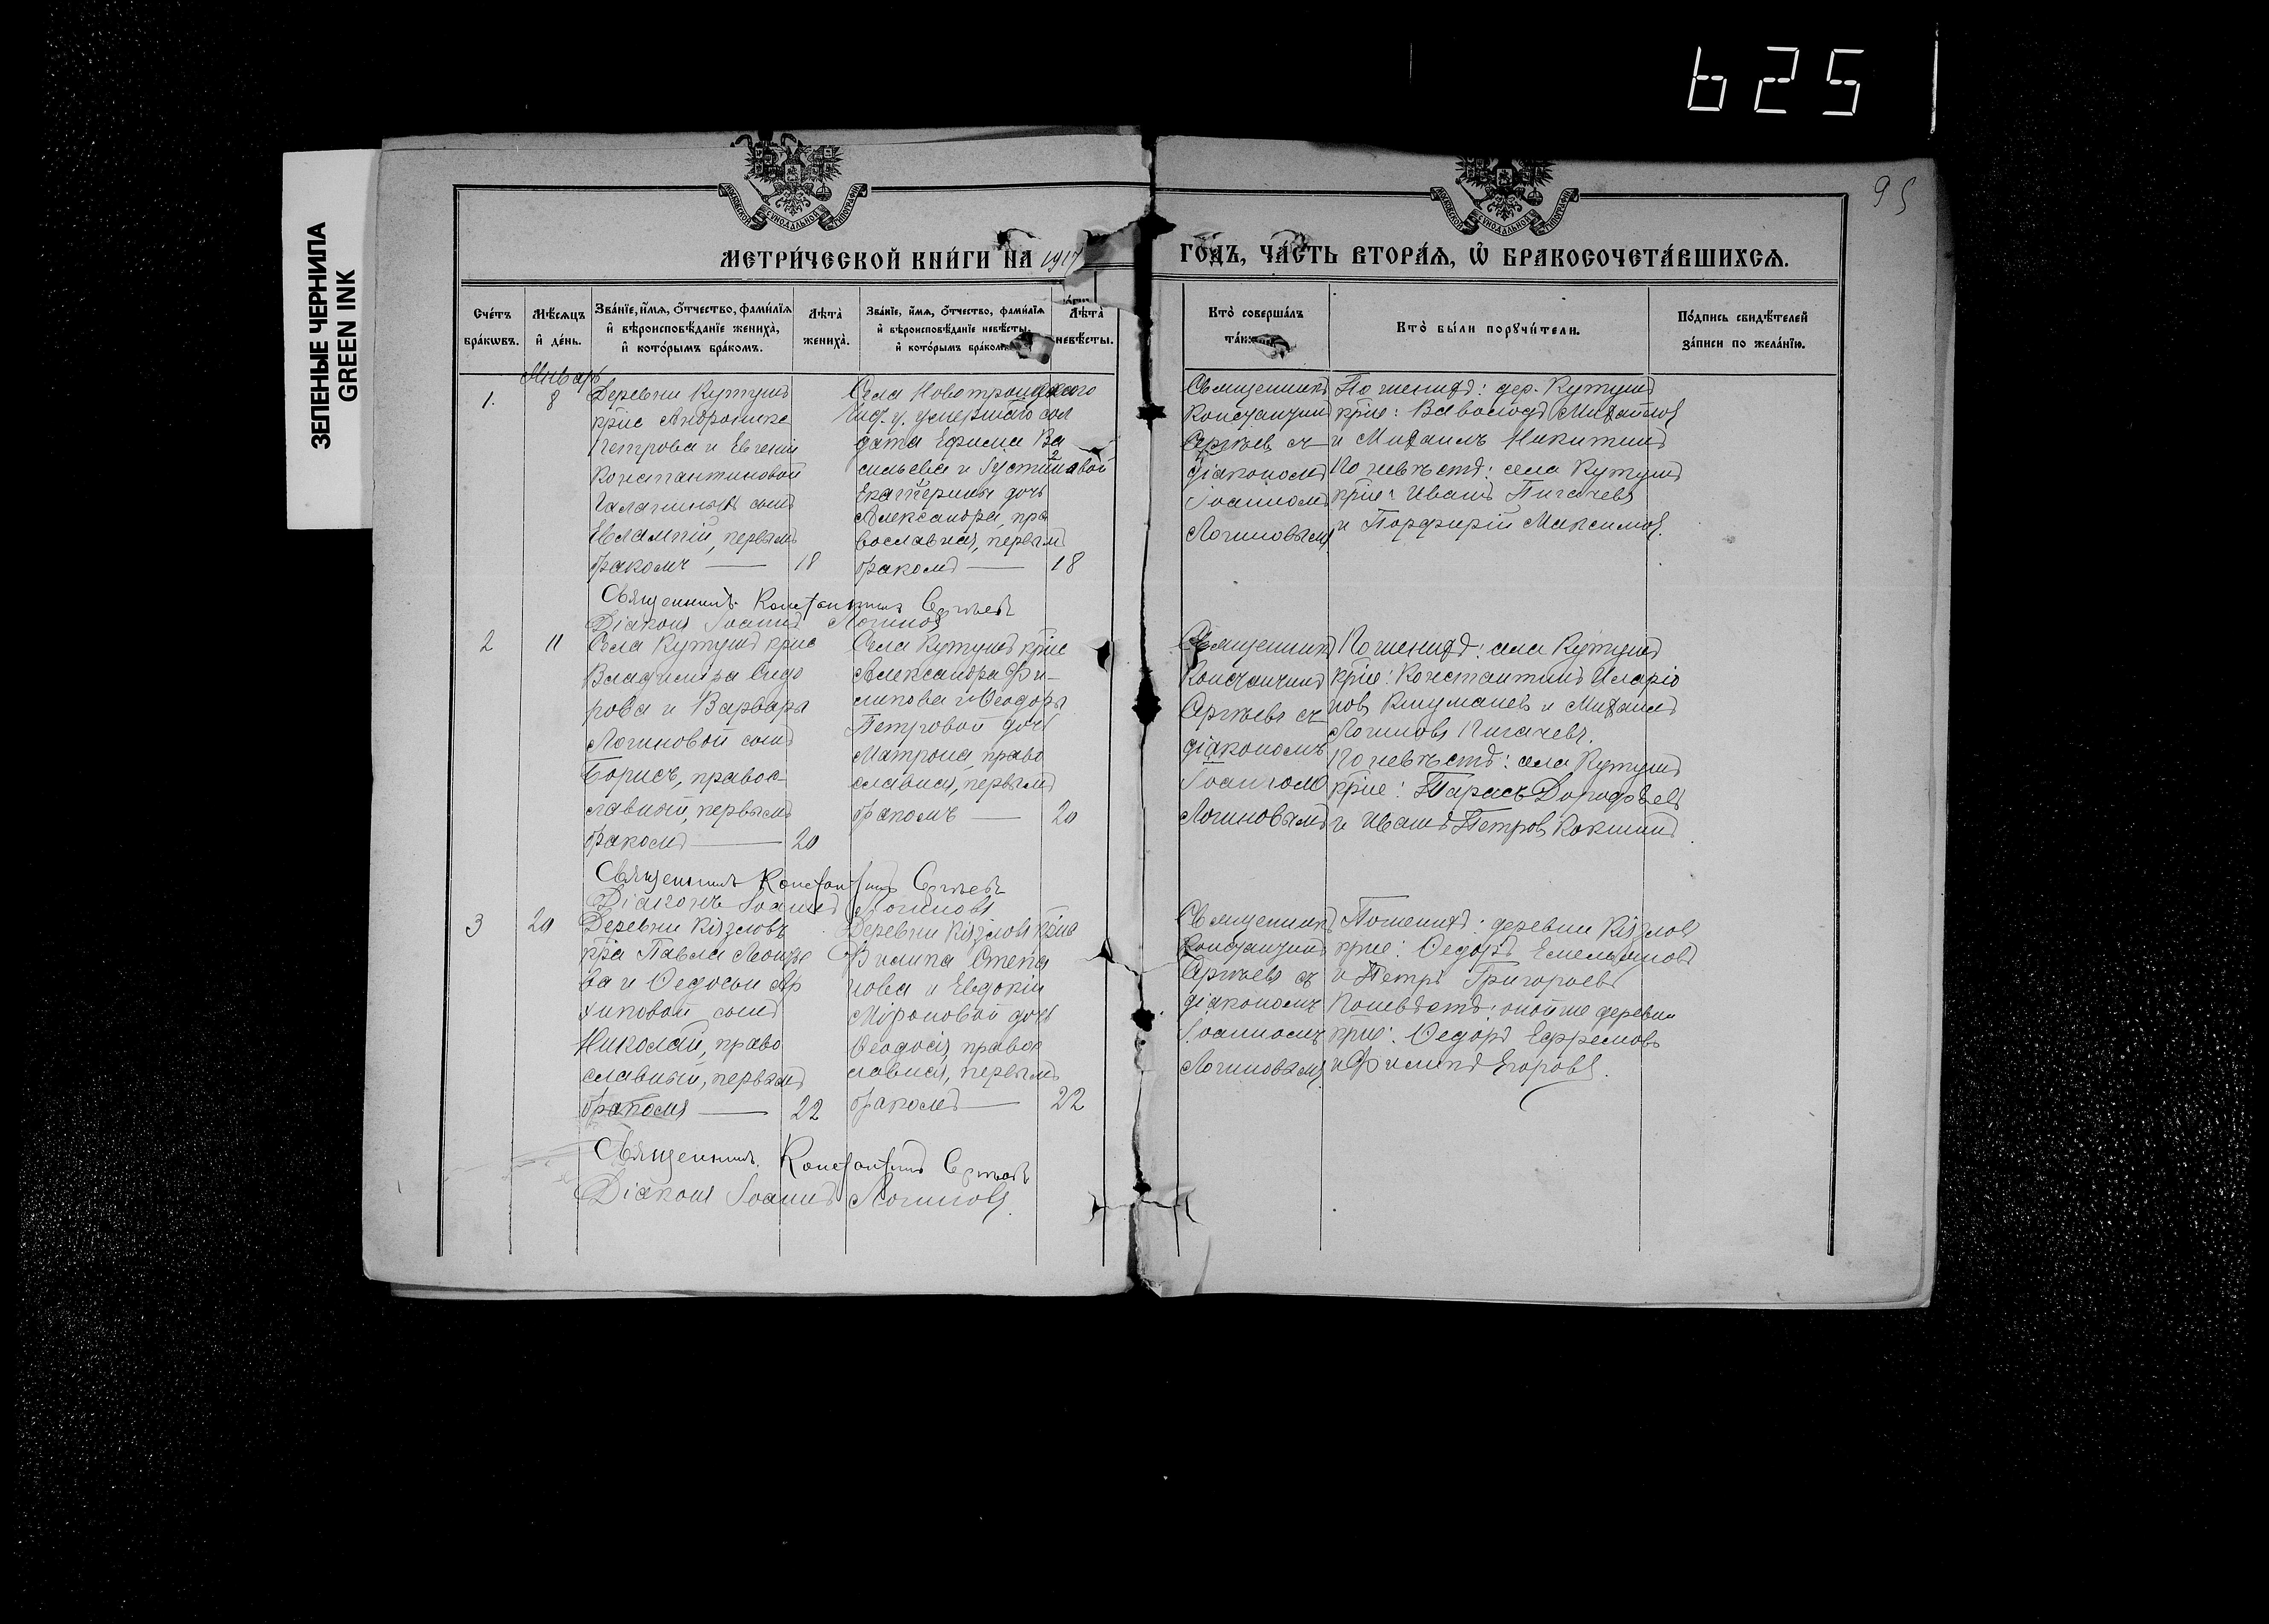 625
ЗЕЛЕНЫЕ ЧЕРНИЛА
GREEN INK
95
МОСКОВСКОЙ СѴНОДАЛЬНОЙ ТИПОГРАФІИ
МОСКОВСКОЙ СѴНОДАЛЬНОЙ ТИПОГРАФІИ
МЕТРИ́ЧЕСКОЙ КНИ́ГИ НА 1917
ГОДЪ, ЧА́СТЬ ВТОРА́Ѧ, Ѡ҆ БРАКОСОЧЕТА́ВШИХСѦ.
Сче́тъ
бра́кѡвъ.
Мѣ́сѧцъ
и҆ де́нь.
Зва́нїе, и҆́мѧ, ѻ҆́тчество, фами́лїѧ
и҆ вѣроисповѣ́данїе жениха̀,
и҆ кото́рымъ бра́комъ.
Лѣ́та
жениха̀.
Зва́нїе, и҆́мѧ, ѻ҆́тчество, фами́лїѧ
и҆ вѣроисповѣ́данїе невѣ́сты,
и҆ кото́рымъ бра́комъ
Лѣ́та
невѣ́сты.
Кто̀ соверша́лъ
Кто̀ бы́ли порꙋчи́тели.
По́дпись свидѣ́телей
за́писи по жела́нїю.
Январь
1.
8
Деревни Кутушъ
кр̄не Андроника
Петрова и Евгеніи
Константиновой
сынъ
Евлампій, первымъ
бракомъ — 18
Села Новотроицкаго
умершаго сол
дата Ефима Ва
сильева и Густиновой
Екатерины дочь
Александра, пра
вославная, первымъ
бракомъ — 18
Священникъ
Константинъ
Сергѣевъ съ
діакономъ
Іоанномъ
Логиновымъ
По женихѣ: дер. Кутушъ
кр̄не: Всеволодъ Михайловъ
и Михаилъ Никитинъ
По невѣстѣ: села Кутушъ
кр̄не: Иванъ Пигачевъ
и Порфирій Максимовъ.
Священникъ Константинъ Сергѣевъ
Діаконъ Іоаннъ Логиновъ
2
11
Села Кутушъ кр̄не
Владиміра Сидо
рова и Варвары
Логиновой сынъ
Борисъ, правос-
лавный, первымъ
бракомъ — 20
Села Кутушъ кр̄не
Александра Фи-
липова и Ѳеодоры
Петровой дочь
Матрона, право
славная, первымъ
бракомъ — 20
Священникъ
Константинъ
Сергѣевъ съ
діакономъ
Іоанномъ
Логиновымъ
По женихѣ: села Кутушъ
кр̄не: Константинъ Иларіо
новъ и Михаилъ
Логиновъ Пигачевъ.
По невѣстѣ: села Кутушъ
кр̄не: Тарасъ Дорофѣевъ
и Иванъ Петровъ Кокшинъ.
Священникъ Константинъ Сергѣевъ
Діаконъ Іоаннъ Логиновъ
3
20
Деревни Кізловъ
кр̄на Павла Леонтье
ва и Ѳедосьи Ар
хиповой сынъ
Николай, право
славный, первымъ
бракомъ — 22
Деревни Кізловъ кр̄не
Филипа Степа
нова и Евдокіи
Міроновой дочь
Ѳеодосія, правос
лавная, первымъ
бракомъ — 22
Священникъ
Константинъ
Сергѣевъ съ
діакономъ
Іоанномъ
Логиновымъ
По женихѣ: деревни Кізловъ
кр̄не: Ѳедоръ Емельяновъ
и Петръ Григорьевъ
По невѣстѣ: оной же деревни
кр̄не: Ѳедоръ Ефремовъ
и Филипъ Егоровъ.
Священникъ Константинъ Сергѣевъ
Діаконъ Іоаннъ Логиновъ.